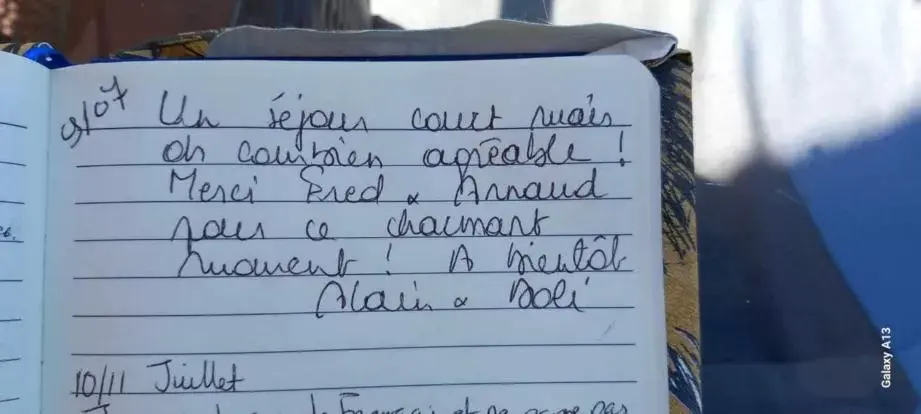 9/07 Un séjour court mais
oh combien agréable !
Merci Fred & Arnaud
pour ce charmant
moment ! A bientôt
Alain &
10/11 Juillet
Galaxy A13